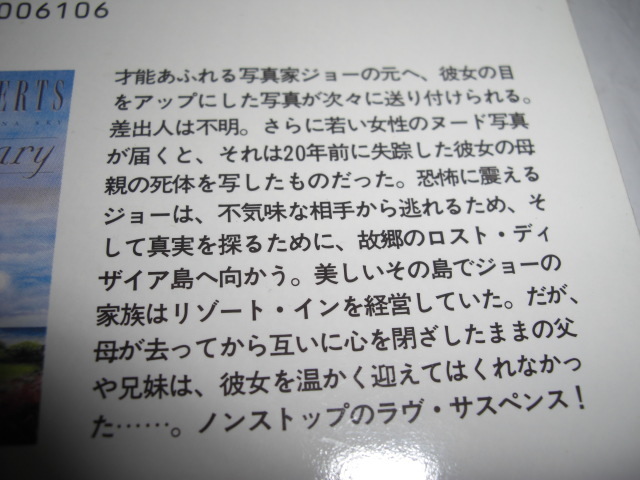 006106
ERTS
ary
才能あふれる写真家ジョーの元へ、彼女の目
をアップにした写真が次々に送り付けられる。
差出人は不明。さらに若い女性のヌード写真
が届くと、それは20年前に失踪した彼女の母
親の死体を写したものだった。恐怖に震える
ジョーは、不気味な相手から逃れるため、そ
して真実を探るために、故郷のロスト・ディ
ザイア島へ向かう。美しいその島でジョーの
家族はリゾート・インを経営していた。だが、
母が去ってから互いに心を閉ざしたままの父
や兄妹は、彼女を温かく迎えてはくれなかっ
た……。ノンストップのラヴ・サスペンス！